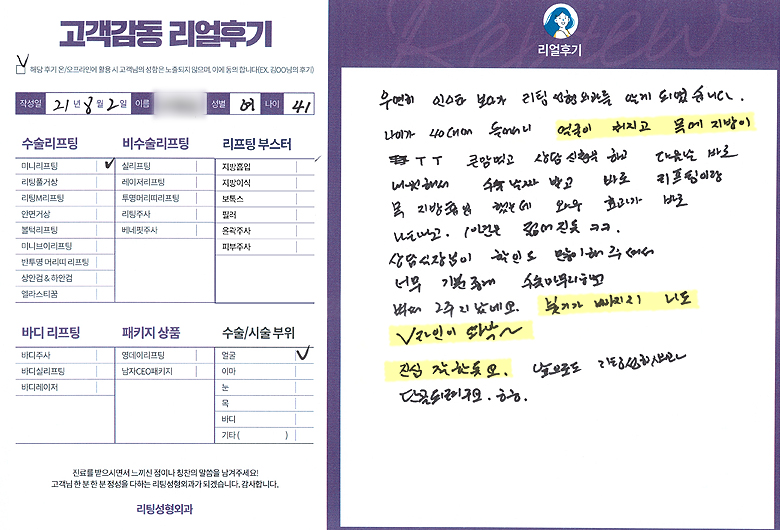 고객감동 리얼후기
해당 후기 온/오프라인에 활용 시 고객님의 성함은 노출되지 않으며, 이에 동의 합니다(EX. 김OO님의 후기)
작성일 21년 8월 2일 이름 성별 여 나이 41
수술리프팅
미니리프팅
리팅풀거상
리팅M리프팅
안면거상
볼턱리프팅
미니브이리프팅
반투명 머리띠 리프팅
상안검 & 하안검
엘라스티꿈
비수술리프팅
실리프팅
레이저리프팅
투명머리띠리프팅
리팅주사
베네핏주사
리프팅 부스터
지방흡입
지방이식
보톡스
필러
윤곽주사
피부주사
바디 리프팅
바디주사
바디실리프팅
바디레이저
패키지 상품
영데이리프팅
남자CEO패키지
수술/시술 부위
얼굴
이마
눈
목
바디
기타 ( )
진료를 받으시면서 느끼신 점이나 칭찬의 말씀을 남겨주세요!
고객님 한 분 한 분 정성을 다하는 리팅성형외과가 되겠습니다. 감사합니다.
리팅성형외과
Review
리얼후기
우연히 인스타 보다가 리팅성형외과를 알게 되었습니다.
나이가 40대에 들어서니 얼굴이 쳐지고 목에 지방이
ㅜㅜ 큰맘먹고 상담 신청을 하고 다음날 바로
내원해서 수술날짜 받고 바로 리프팅이랑
목 지방흡입 했는데 와우 효과가 바로
나타나고. 10년은 젊어진듯 ㅋㅋ.
상담실장님이 할인도 많이해 주셔서
너무 기분좋게 수술마무리하고
벌써 2주 지났네요. 붓기가 빠지니 나도
V라인이 똬악~
진심 잘한듯요. 앞으로도 리팅성형외과
단골되려구요. ㅎㅎ.